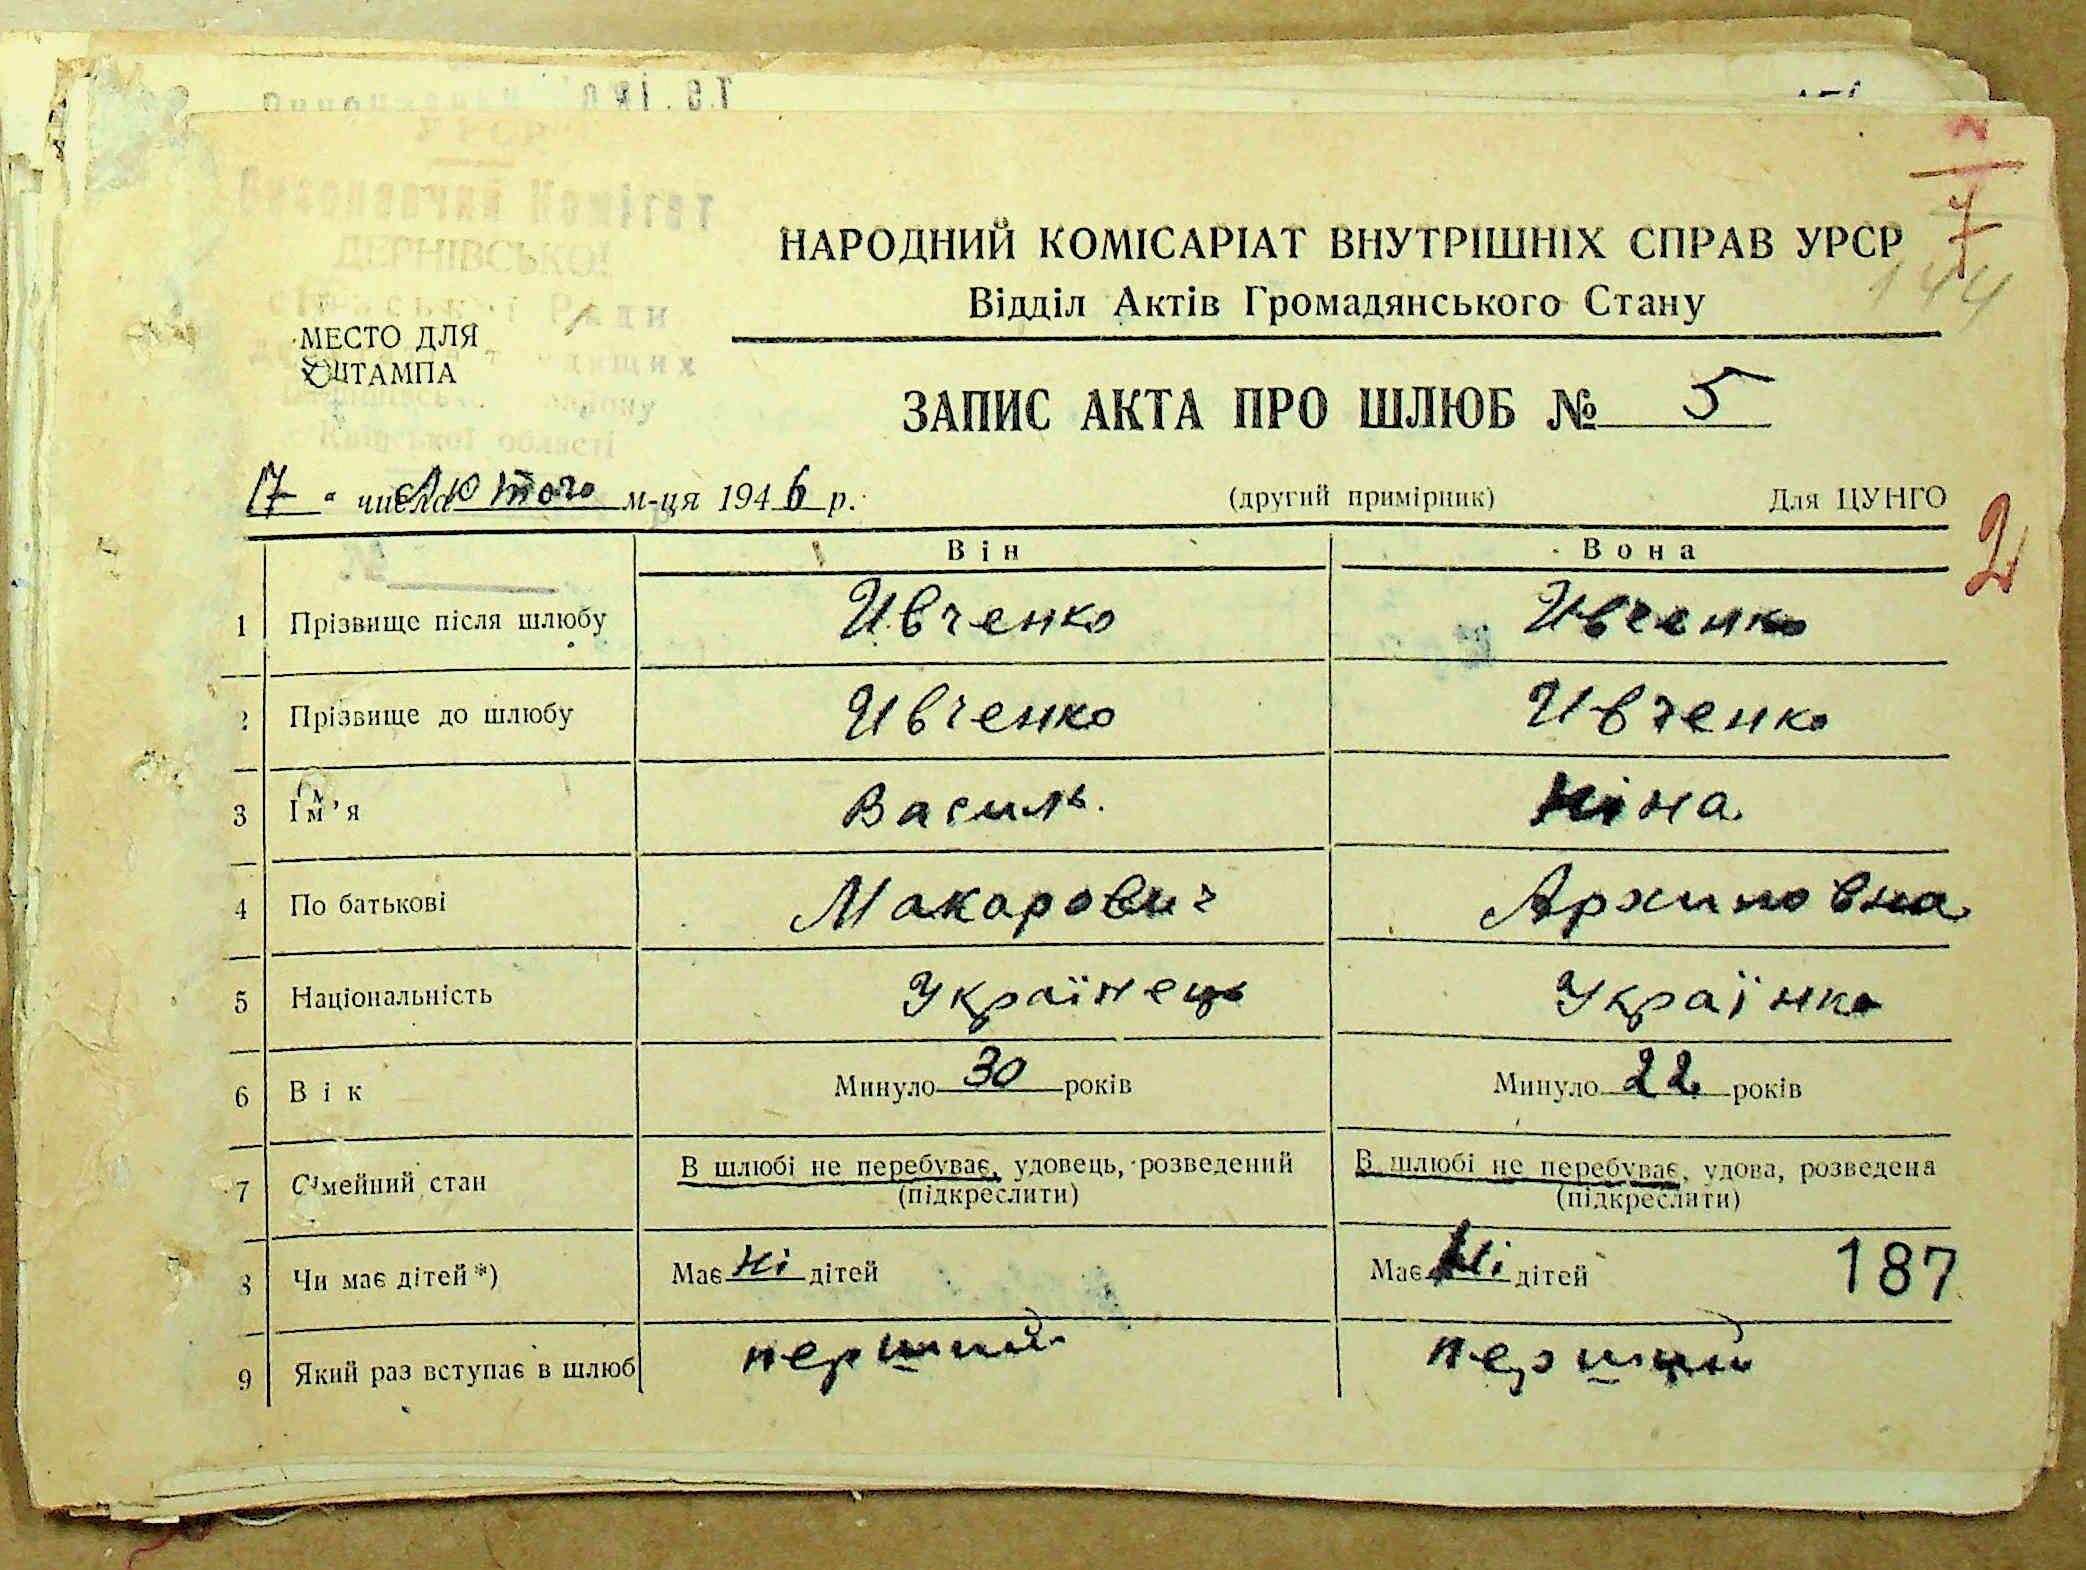 УРСР
Виконавчий Комітет
ДЕРНІВСЬКОЇ
сільської Ради
депутатів трудящих
району
Київської області
НАРОДНИЙ КОМІСАРІАТ ВНУТРІШНІХ СПРАВ УРСР
Відділ Актів Громадянського Стану
7
144
МЕСТО ДЛЯ
ШТАМПА
ЗАПИС АКТА ПРО ШЛЮБ № 5
17 " числа Лютого м-ця 1946 р.
(другий примірник) Для ЦУНГО
2
Він Вона
1 Прізвище після шлюбу Ивченко Ивченко
2 Прізвище до шлюбу Ивченко Ивченко
3 Ім'я Василь. Ніна
4 По батькові Макарович Архиповна
5 Національність Українець Українка
6 Вік Минуло 30 років Минуло 22 років
7 Сімейний стан В шлюбі не перебуває, удовець, розведений В шлюбі не перебуває, удова, розведена
(підкреслити) (підкреслити)
8 Чи має дітей*) Має ні дітей Має ні дітей 187
9 Який раз вступає в шлюб перший перший